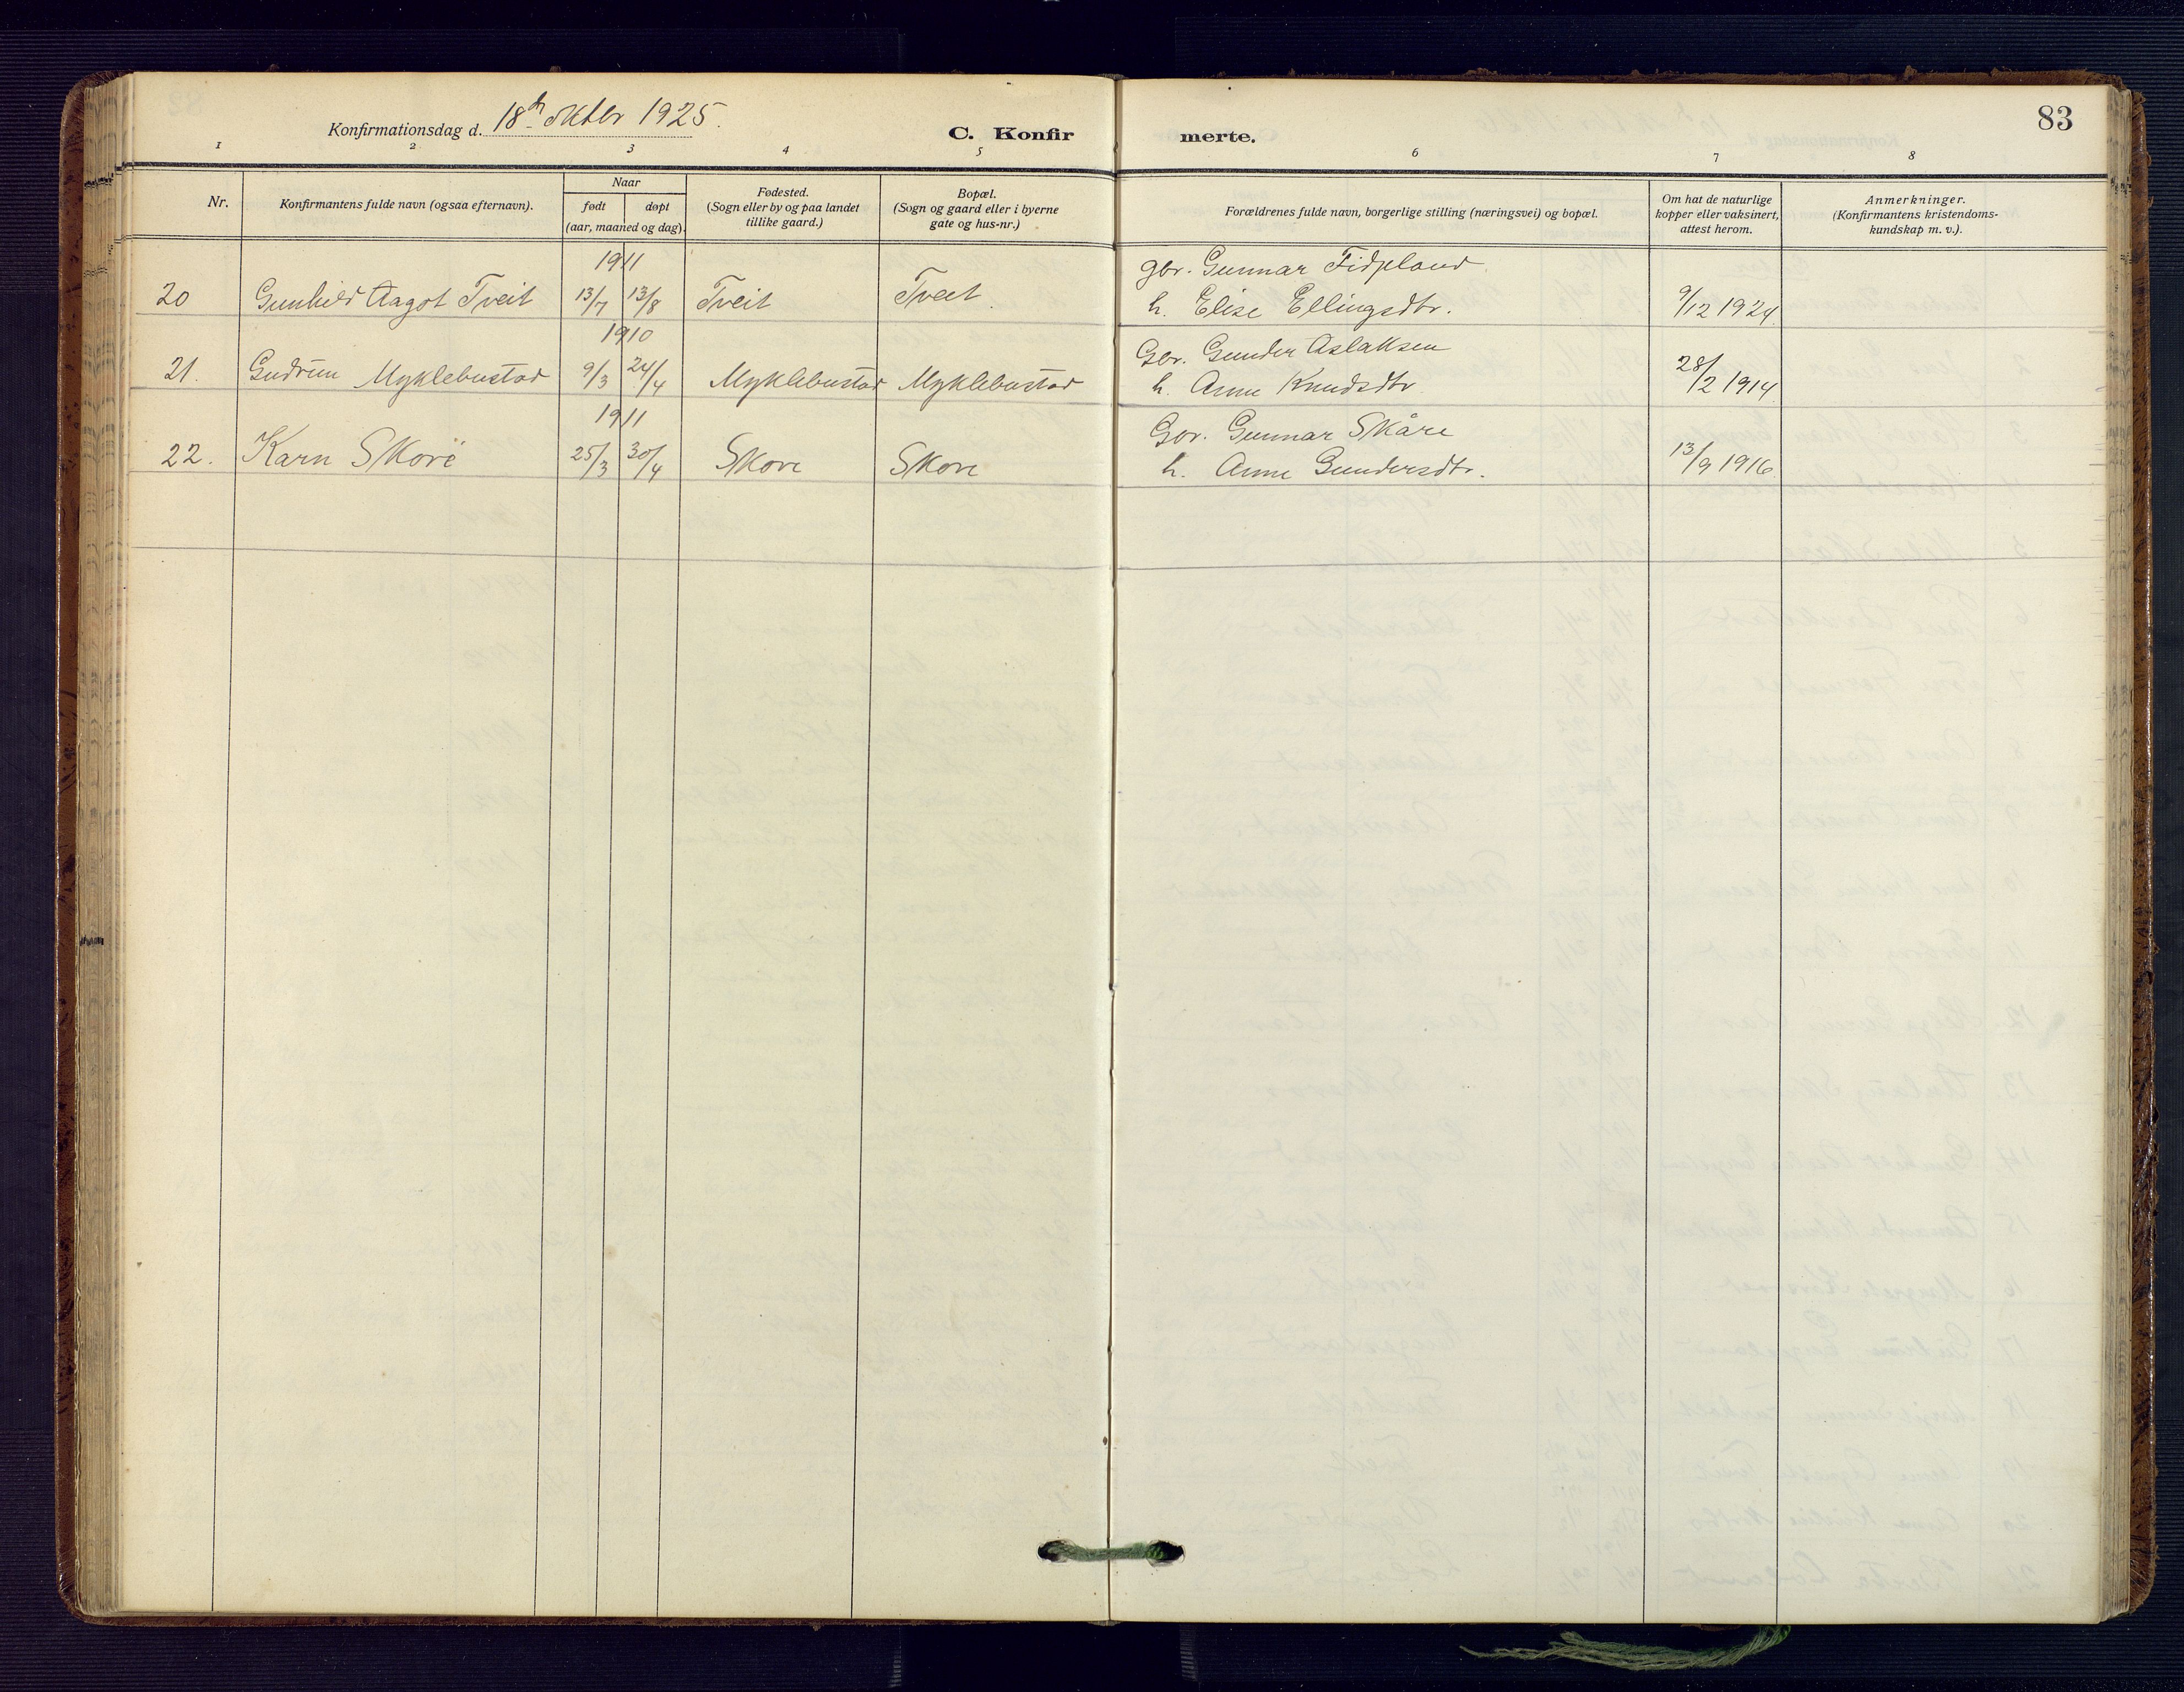 83
Konfirmationsdag d. 18de oktbr 1925.
C. Konfir merte.
1 2 3 4 5 6 7 8
Nr.
Konfirmantens fulde navn (ogsaa efternavn).
Naar
født døpt
(aar, maaned og dag).
Fødested.
(Sogn eller by og paa landet
tillike gaard.)
Bopæl.
(Sogn og gaard eller i byerne
gate og hus-nr.)
Forældrenes fulde navn, borgerlige stilling (næringsvei) og bopæl.
Om hat de naturlige
kopper eller vaksinert,
attest herom.
Anmerkninger.
(Konfirmantens kristendoms-
kundskap m. v.).
1911 gbr. Gunnar Fidjeland
20 Gunhild Aagot Tveit 13/7 13/8 Tveit Tveit. h. Elise Ellingsdtr. 9/12 1924.
1910 Gbr. Gunder Aslaksen
21. Gudrun Myklebustad 9/3 24/4 Myklebustad Myklebustad h. Anne Knudsdtr 28/2 1914
1911 Gbr. Gunnar Skåre
22. Karn Skore 25/3 30/4 Skore Skore h. Anne Gundersdtr. 13/9 1916